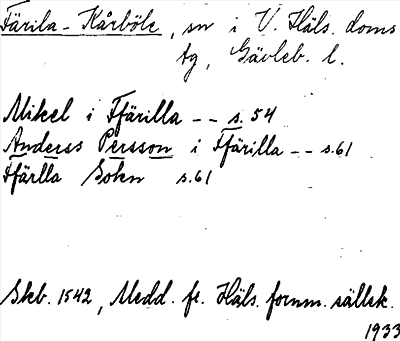 Färila-Kårböle, sn i V. Häls. doms
tg, Gävleb. l.
Mikel i Ffärilla -- s. 54
Anderss Persson i Ffärilla -- s.61
Ffärlla Sokn s.61
Skb. 1542, Medd. fr. Häls. fornm. sällsk.
1933